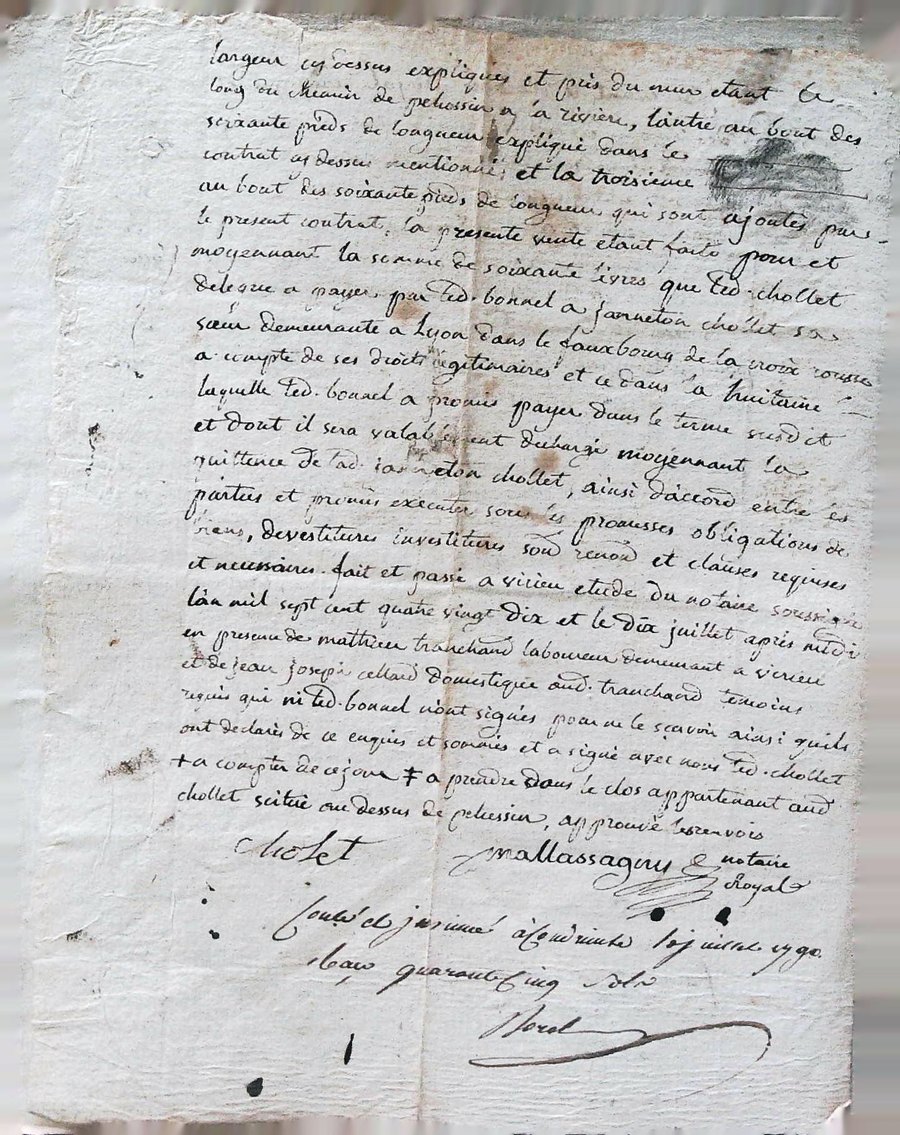 largeur cy dessus expliqués et pris du mur etant le
long du chemin de pelossin a la riviere, l'autre au bout des
soixante pieds de longueur expliqué dans le
contrat cy dessus mentionné, et la troisieme
au bout des soixante pieds de longueur qui sont ajoutés par
le present contrat, la presente vente etant faite pour et
moyennant la somme de soixante livres que led. chollet
delegue a payer par led. bonnel a janneton chollet sa
sœur demeurante a Lyon dans le fauxbourg de la croix rousse
a compte de ses droits legitimaires et ce dans la huitaine
laquelle led. bonnel a promis payer dans le terme susdit
et dont il sera valablement dechargé moyennant la
quittence de lad. janneton chollet, ainsi d'accord entre les
parties et promis executer sous les promesses obligations de
biens, devestitures investitures soud renond et clauses requises
et necessaires. fait et passé a virieu etude du notaire soussigné
l'an mil sept cent quatre vingt dix et le dix juillet après midi
en presence de mathieu tranchand laboureur demeurant a virieu
et de jean joseph cellard domestique aud. tranchand temoins
requis qui ni led. bonnel n'ont signés pour ne le scavoir ainsi quils
ont declarés de ce enquis et sommés et a signé avec nous led. chollet
+ a compter de ce jour ‡ a prendre dans le clos appartenant aud
chollet scitué au dessus de pelussin, approuvé les renvois
Cholet
mallassagny notaire
Royal
Conlé et insinué à Condrieu le juillet 1790
Reçu quarante cinq sols